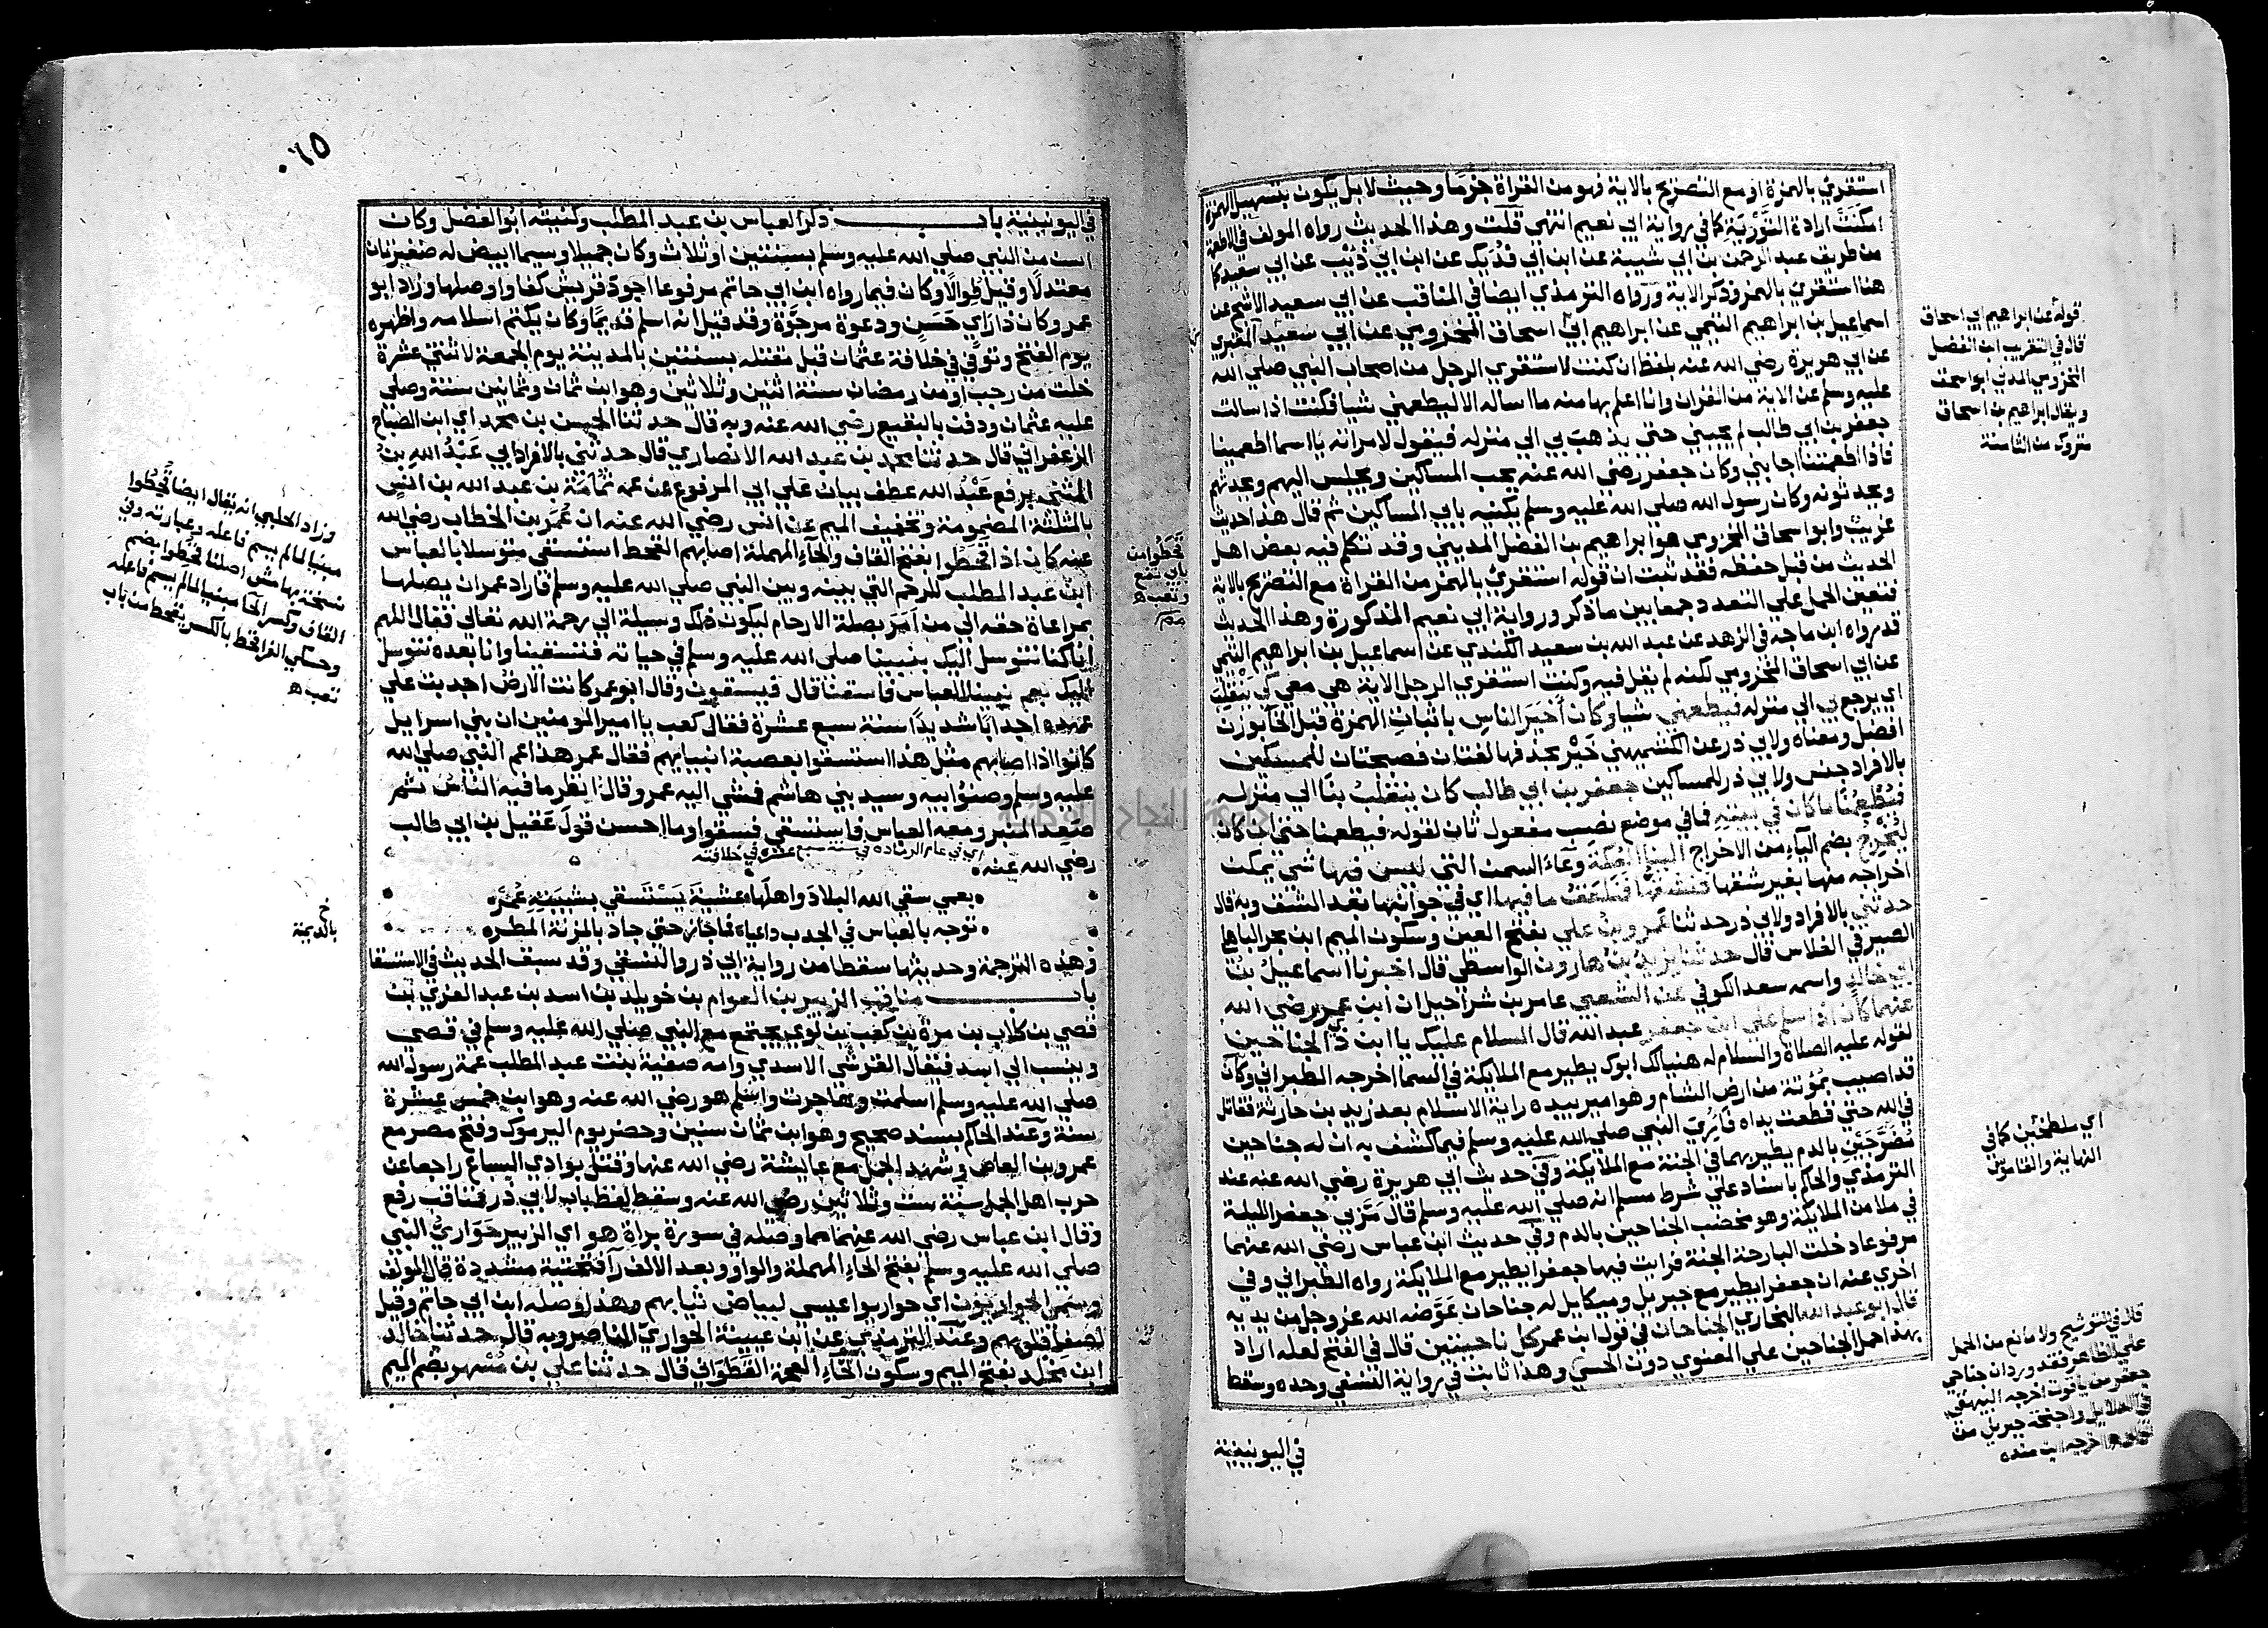 استقرئ بالهمزة او مع التصريح بالاية فهو من القراة جزما وحيث لا بل يكون بتسهيل الهمزة
امكنت ارادة التورية كما في رواية ابي نعيم انتهى قلت وهذا الحديث رواه المولف في الاطعمة
من طريق عبد الرحمن بن ابي شيبة عن ابن ابي فديك عن ابن ابي ذئب عن ابي سعيد كما
هنا استقرئ بالهمز وذكر الاية ورواه الترمذي ايضا في المناقب عن ابي سعيد الاشج عن
اسماعيل بن ابراهيم التيمي عن ابراهيم ابي اسحاق المخزومي عن ابي سعيد المقبري
عن ابي هريرة رضي الله عنه بلفظ ان كنت لاستقري الرجل من اصحاب النبي صلي الله
عليه وسلم عن الاية من القران وانا اعلم بها منه ما اساله الا ليطعمني شيا فكنت اذا سالت
جعفر بن ابي طالب لم يجبني حتي يذهب بي الي منزله فيقول لامراته يا اسما اطعمينا
فاذا اطعمتنا اجابني وكان جعفر رضي الله عنه يحب المساكين ويجلس اليهم ويحدثهم
ويحدثونه وكان رسول الله صلي الله عليه وسلم يكنيه بابي المساكين ثم قال هذا حديث
غريب وابو اسحاق المخزومي هو ابراهيم بن الفضل المديني وقد تكلم فيه بعض اهل
الحديث من قبل حفظه فقد ثبت ان قوله استقرئ بالهمز من القراة مع التصريح بالاية
فتعين الحمل علي التعدد جمعا بين ما ذكر ورواية ابي نعيم المذكورة وهذا الحديث
قد رواه ابن ماجه في الزهد عن عبد الله بن سعيد الكندي عن اسماعيل بن ابراهيم التيمي
عن ابي اسحاق المخزومي لكنه لم يقل فيه وكنت استقري الرجل الاية هي معي كي ينقلب
اي يرجع بي الي منزله فيطعمني شيا وكان اخير الناس باثبات الهمزة قبل الخا بوزن
افضل ومعناه ولابي ذر عن الكشميهني خير بحذفها لغتان فصيحتان للمسكين
بالافراد جنس ولابي ذر للمساكين جعفر بن ابي طالب كان ينقلب بنا الي منزله
فيطعمنا ما كان في بيته فما في موضع نصب مفعول ثان لقوله فيطعمنا حتي ان كان
ليخرج بضم الياء من الاخراج الينا العكة وعاء السمن التي ليس فيها شي يمكن
اخراجه منها بغير شقها فنشقها فنلعق ما فيها اي في جوانبها بعد الشق وبه قال
حدثني بالافراد ولابي ذر حدثنا عمرو بن علي بفتح العين وسكون الميم ابن بحر الباهلي
الصيرفي الفلاس قال حدثنا يزيد بن هارون الواسطي قال اخبرنا اسماعيل بن
ابي خالد واسمه سعد الكوفي عن الشعبي عامر بن شراحيل ان ابن عمر رضي الله
عنهما كان اذا سلم علي ابن جعفر عبد الله قال السلام عليك يا ابن ذي الجناحين
لقوله عليه الصلاة والسلام له هنيا لك ابوك يطير مع الملايكة في السما اخرجه الطبراني وكان
قد اصيب بموتة من ارض الشام وهو امير بيده راية الاسلام بعد زيد بن حارثة فقاتل
في الله حتي قطعت يداه فاري النبي صلي الله عليه وسلم فيما كشف به ان له جناحين
مضرجين بالدم يطير بهما في الجنة مع الملايكة وفي حديث ابي هريرة رضي الله عنه عند
الترمذي والحاكم باسناد علي شرط مسلم انه صلي الله عليه وسلم قال مر بي جعفر الليلة
في ملا من الملايكة وهو مخضب الجناحين بالدم وفي حديث ابن عباس رضي الله عنهما
مرفوعا دخلت البارحة الجنة فرايت فيها جعفرا يطير مع الملايكة رواه الطبراني وفي
اخري عنه ان جعفرا يطير مع جبريل وميكايل له جناحان عوضه الله عز وجل من يديه
قال ابو عبد الله البخاري الجناحان في قول ابن عمر كل ناحيتين قال في الفتح لعله اراد
بهذا حمل الجناحين علي المعنوي دون الحسي وهذا ثابت في رواية النسفي وحده وسقط
في اليونينية
قوله عن ابراهيم ابي اسحاق
قال في التقريب ابن الفضل
المخزومي المدني ابو اسحق
ويقال ابراهيم بن اسحاق
متروك من الثامنة
اي ملطخين كما في
النهاية والقاموس
قال في التوشيح ولا مانع من الحمل
علي الظاهر فقد ورد ان جناحي
جعفر من ياقوت اخرجه البيهقي
في الدلايل واجنحة جبريل من
اخرجه ابن منده
٠٦٥
في اليونينية باب ذكر العباس بن عبد المطلب وكنيته ابو الفضل وكان
اسن من النبي صلي الله عليه وسلم بسنتين او ثلاث وكان جميلا وسيما ابيض له ضفيرتان
معتدلا وقيل طوالا وكان فيما رواه ابن ابي حاتم مرفوعا اجود قريش كفا واوصلها وزاد ابو
عمر وكان ذا راي حسن ودعوة مرجوة وقد قيل انه اسلم قديما وكان يكتم اسلامه واظهره
يوم الفتح وتوفي في خلافة عثمان قبل مقتله بسنتين بالمدينة يوم الجمعة لاثنتي عشرة
خلت من رجب او من رمضان سنة اثنين وثلاثين وهو ابن ثمان وثمانين سنة وصلي
عليه عثمان ودفن بالبقيع رضي الله عنه وبه قال حدثنا الحسن بن محمد اي ابن الصباح
الزعفراني قال حدثنا محمد بن عبد الله الانصاري قال حدثني بالافراد ابي عبد الله بن
المثني برفع عبد الله عطف بيان علي ابي المرفوع عن عمه ثمامة بن عبد الله بن انس
بالمثلثة المضمومة وتخفيف الميم عن انس رضي الله عنه ان عمر بن الخطاب رضي الله
عنه كان اذا قحطوا بفتح القاف والحاء المهملة اصابهم القحط استسقي متوسلا بالعباس
ابن عبد المطلب للرحم التي بينه وبين النبي صلي الله عليه وسلم فاراد عمر ان يصلها
بمراعاة حقه الي من امر بصلة الارحام ليكون ذلك وسيلة الي رحمة الله تعالي فقال اللهم
انا كنا نتوسل اليك بنبينا صلي الله عليه وسلم في حياته فتسقينا وانا بعده نتوسل
اليك بعم نبينا العباس فاسقنا قال فيسقون وقال ابو عمر كانت الارض اجدبت علي
عهده اجدابا شديدا سنة سبع عشرة فقال كعب يا امير المومنين ان بني اسرايل
كانوا اذا اصابهم مثل هذا استسقوا بعصبة انبيايهم فقال عمر هذا عم النبي صلي الله
عليه وسلم وصنو ابيه وسيد بني هاشم فمشي اليه عمر وقال انظر ما فيه الناس ثم
صعد المنبر ومعه العباس فاستسقي فسقوا وما احسن قول عقيل بن ابي طالب
اي في عام الرمادة في سنة سبع عشره في خلافته
رضي الله عنه
بعمي سقي الله البلاد واهلها عشية يستسقي بشيبته عمر
توجه بالعباس في الجدب داعيا فما جاز حتي جاد بالمزنة المطر
وهذه الترجمة وحديثها سقطا من رواية ابي ذر والنسفي وقد سبق الحديث في الاستسقا
باب مناقب الزبير بن العوام بن خويلد بن اسد بن عبد العزي بن
قصي بن كلاب بن مرة بن كعب بن لوي يجتمع مع النبي صلي الله عليه وسلم في قصي
وينسب الي اسد فيقال القرشي الاسدي وامه صفية بنت عبد المطلب عمة رسول الله
صلي الله عليه وسلم اسلمت وهاجرت واسلم هو رضي الله عنه وهو ابن خمس عشرة
سنة وعند الحاكم بسند صحيح وهو ابن ثمان سنين وحضر يوم اليرموك وفتح مصر مع
عمرو بن العاص وشهد الجمل مع عايشة رضي الله عنها وقتل بوادي السباع راجعا عن
حرب اهل الجمل سنة ست وثلاثين رضي الله عنه وسقط لفظ باب لابي ذر فمناقب رفع
وقال ابن عباس رضي الله عنهما مما وصله في سورة براة هو اي الزبير حواري النبي
صلي الله عليه وسلم بفتح الحاء المهملة والواو وبعد الالف را فتحتية مشددة قال المولف
وسمي الحواريون اي حواريو عيسي لبياض ثيابهم وهذا وصله ابن ابي حاتم وقيل
لصفا قلوبهم وعند الترمذي عن ابن عيينة الحواري الناصر وبه قال حدثنا خالد
ابن مخلد بفتح الميم وسكون الخاء المعجمة القطواني قال حدثنا علي بن مسهر بضم الميم
قحطوا من
باب نفع
وتعب
وزاد الحلبي انه يقال ايضا قحطوا
مبنيا لما لم يسم فاعله وعبارته وفي
نسخة بهامش اصلنا قحطوا بضم
القاف وكسر الحا مبنيا لما لم يسم فاعله
وحكي الفرا قحط بالكسر يقحط من باب
تعب
بالديمة